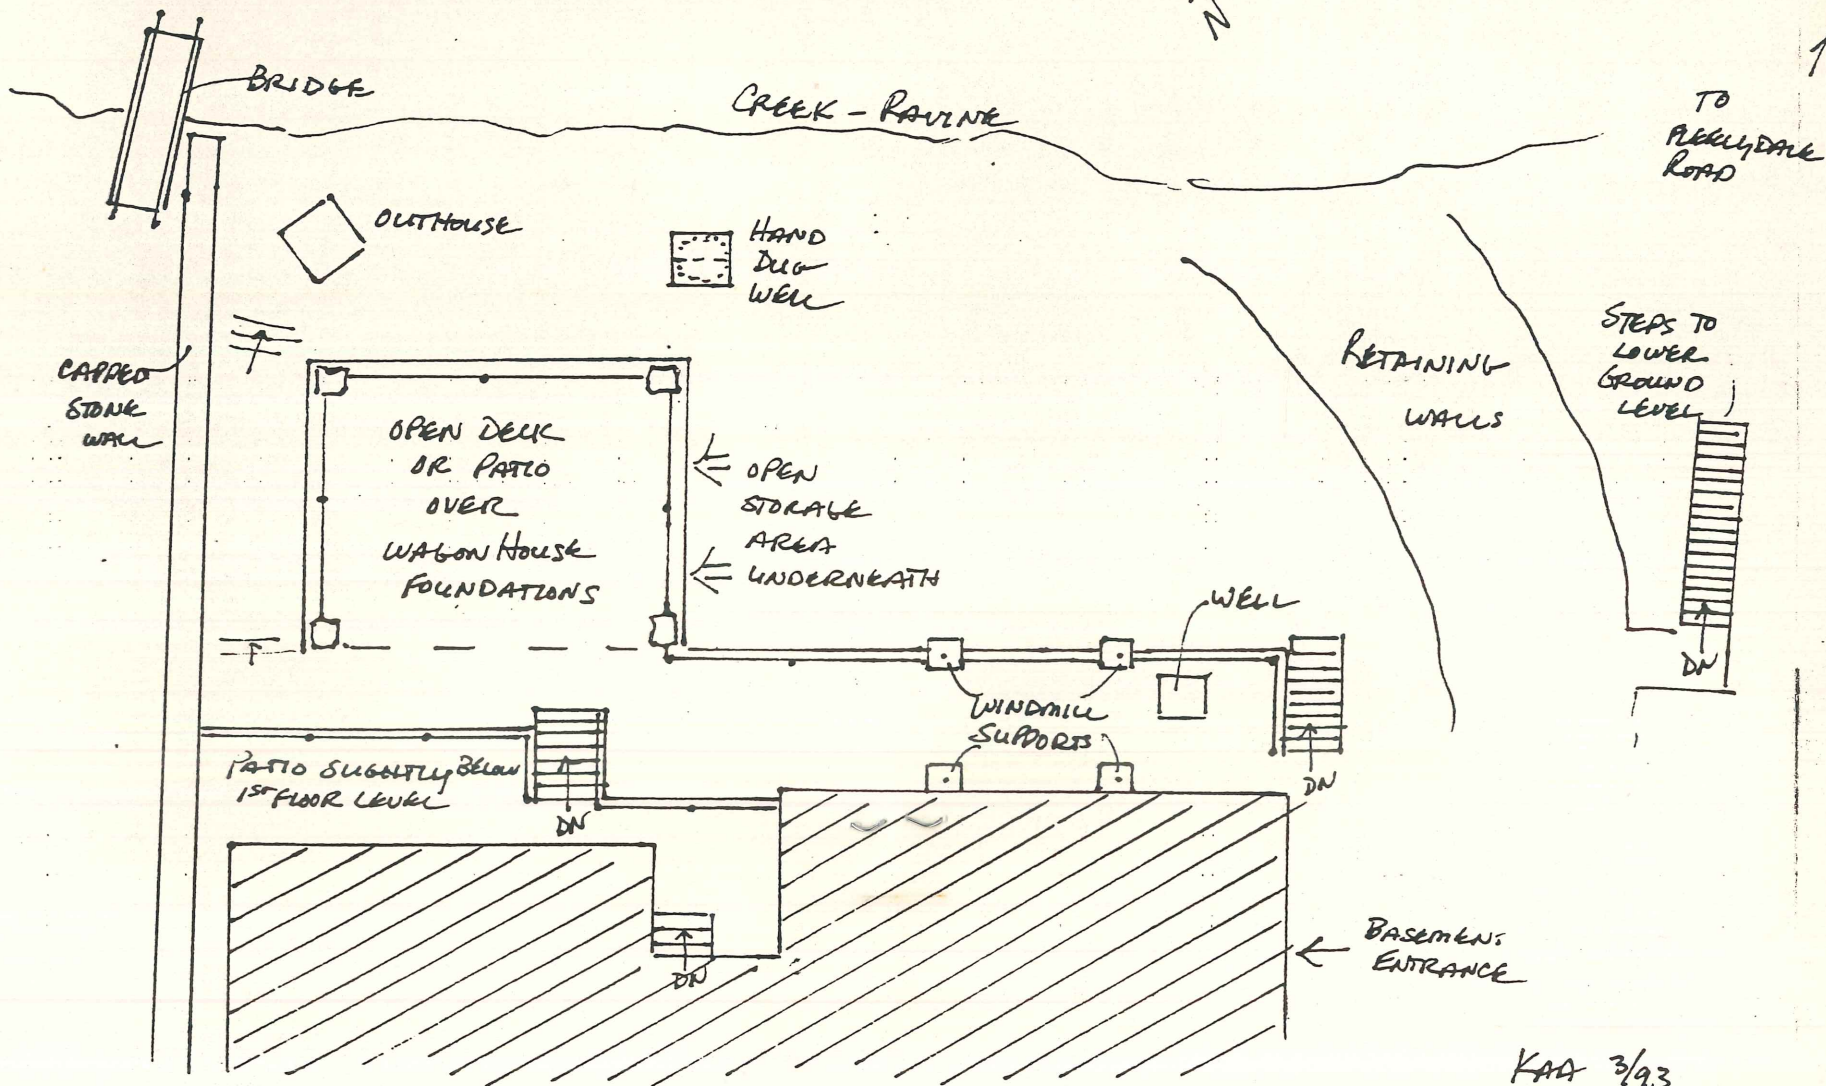 N
1
BRIDGE
CREEK - RAVINE
TO
ROAD
OUTHOUSE
HAND
DUG
WELL
CAPPED
STONE
WALL
STEPS TO
LOWER
GROUND
LEVEL
RETAINING
WALLS
OPEN DECK
OR PATIO
OVER
WAGON HOUSE
FOUNDATIONS
OPEN
STORAGE
AREA
UNDERNEATH
WELL
DN
WINDMILL
SUPPORTS
PATIO SLIGHTLY BELOW
1ST FLOOR LEVEL
DN
DN
DN
BASEMENT
ENTRANCE
KAA 3/93